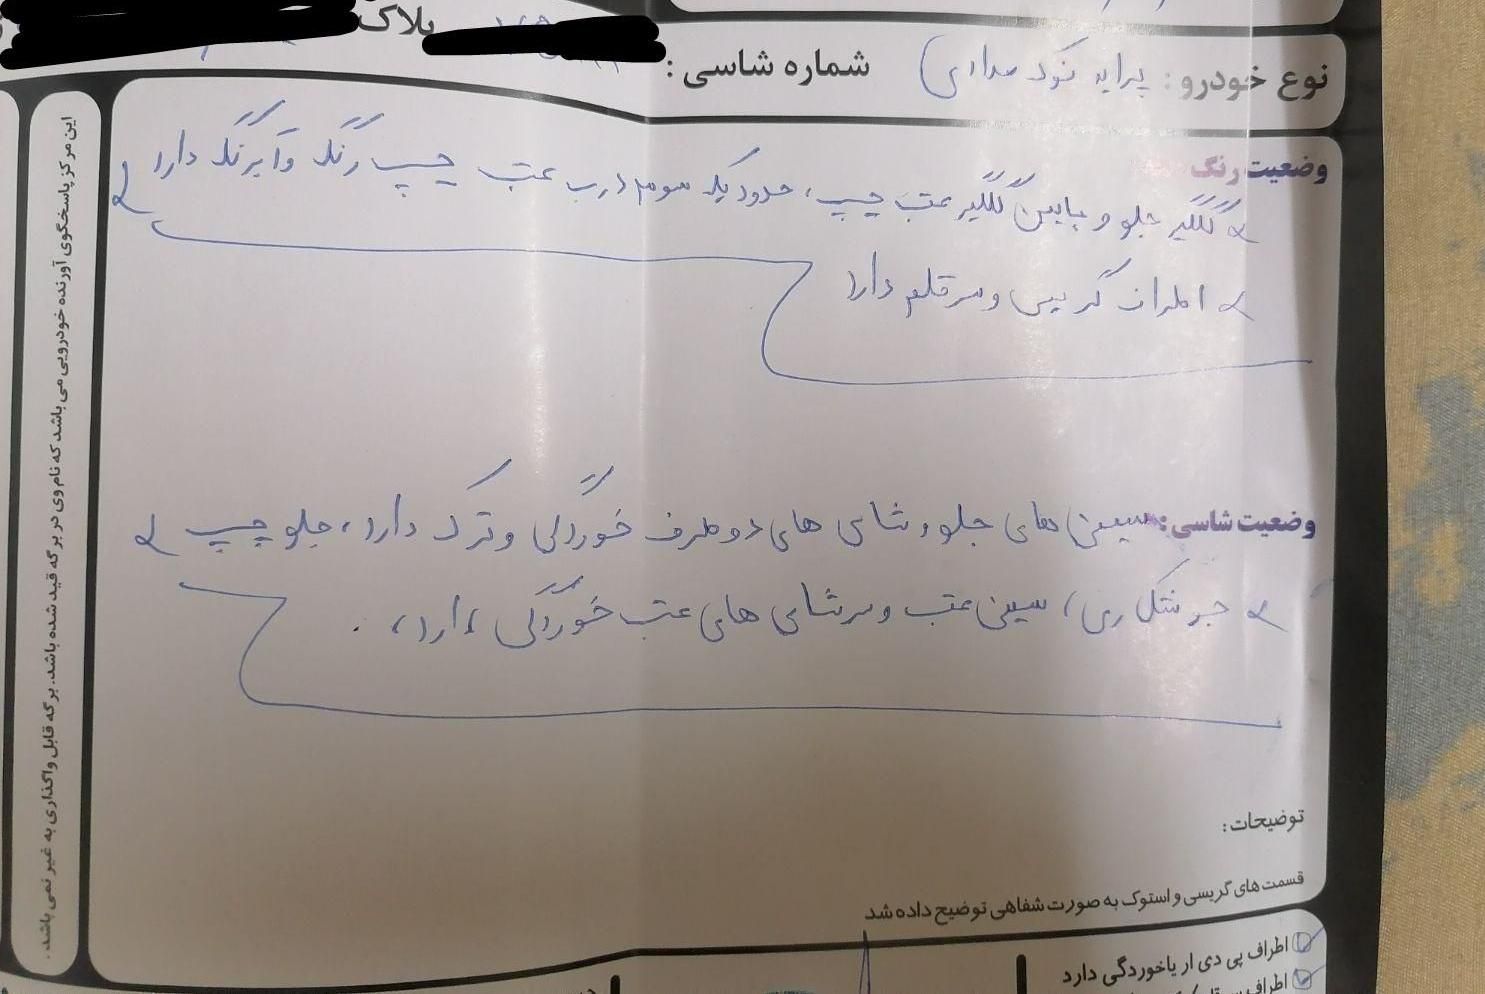 پلاک
نوع خودرو: پراید نوک مدادی شماره شاسی:
وضعیت رنگ
گلگیر جلو و پایین گلگیر عقب چپ، حدود یک سوم درب عقب چپ رنگ و آبرنگ دارد
اطراف گریس و سرقلم دارد
وضعیت شاسی: سینی های جلو و شاسی های دو طرف خوردگی و ترک دارد، جلو چپ
جوشکاری، سینی عقب و سرشاسی های عقب خوردگی دارد.
توضیحات:
قسمت های گریسی و استوک به صورت شفاهی توضیح داده شد
اطراف پی دی ار یاخوردگی دارد
اطراف
این مرکز پاسخگوی آورنده خودرویی می باشد که نام وی در برگه قید شده باشد. برگه قابل واگذاری به غیر نمی باشد.